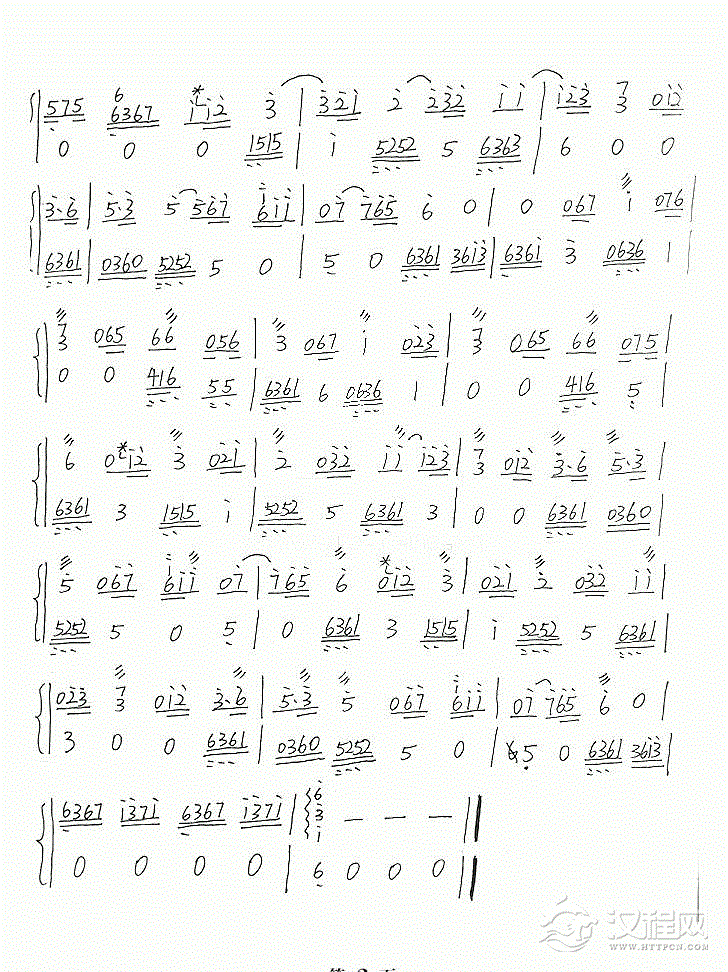 575 6 6367 i̇i̇2̇ 3̇ | 3̇2̇i̇ 2̇ 2̇3̇2̇ i̇ i̇ | i̇2̇3̇ 7 3 0i̇2̇
0 0 0 1515 | i 5252 5 6363 | 6 0 0
3·6 | 5·3 5 567 6ii | 07 765 6 0 | 0 067 i 076
6361 | 0360 5252 5 0 | 5 0 6361 3613 | 6361 3 0636 1 |
7 3 065 66 056 | 3 067 1 023 | 7 3 065 66 075 |
0 0 416 55 | 6361 6 0636 1 | 0 0 416 5 |
6 012 3 021 | 2 032 ii 123 | 7 3 012 3·6 5·3 |
6361 3 1515 i | 5252 5 6361 3 | 0 0 6361 0360 |
5 067 6ii 07 | 765 6 012 3 | 021 2 032 ii |
5252 5 0 5 | 0 6361 3 1515 | i 5252 5 6361 |
023 7 3 012 3·6 | 5·3 5 067 6ii | 07 765 6 0 |
3 0 0 6361 | 0360 5252 5 0 | 5 0 6361 3613 |
6367 i37i 6367 i37i | 6 3 i — — — ||
0 0 0 0 | 6 0 0 0 ||
汉程网
WWW.HTTPCN.COM